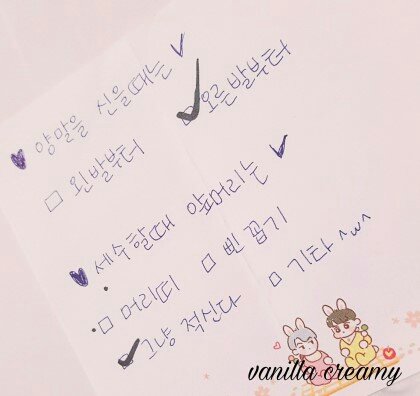 ♥ 양말을 신을때는 ✓
□ 왼발부터 ☑ 오른발부터
♥ 세수할때 앞머리는 ✓
□ 머리띠 □ 삔 꼽기
☑ 그냥 적신다 □ 기타 ^ω^
vanilla creamy